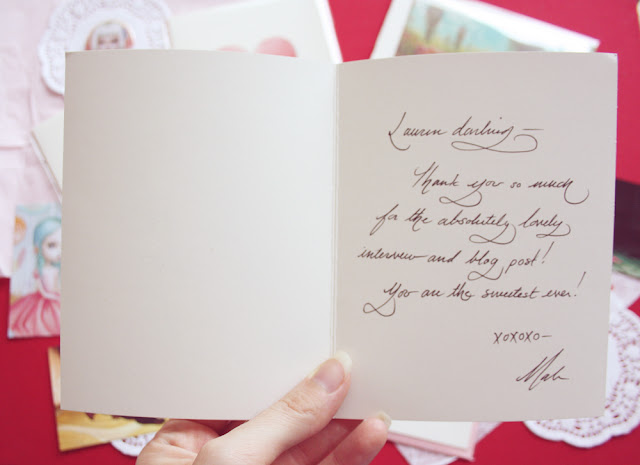 Lauren darling —
Thank you so much
for the absolutely lovely
interview and blog post!
You are the sweetest ever!
xoxoxo —